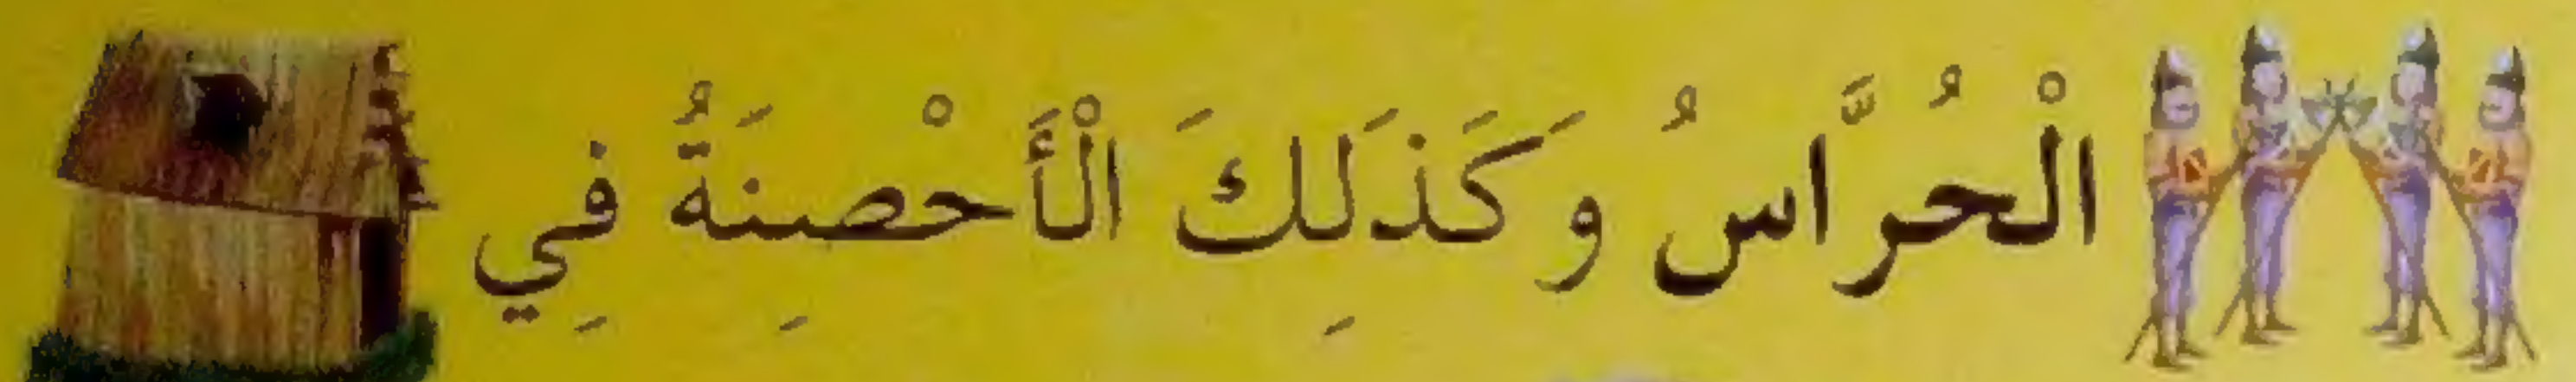 الْحُرَّاسُ وَكَذَلِكَ الْأَحْصِنَةُ فِي